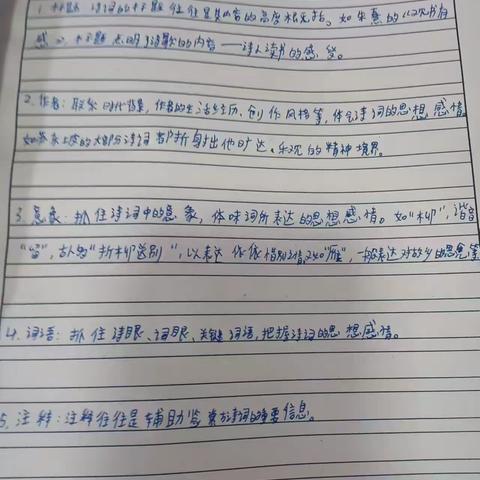 1. 标题 诗词的标题往往是其内容的高度概括。如朱熹的《观书有
感》，标题点明了诗歌的内容——诗人读书的感受。
2. 作者：联系时代背景，作者的生活经历、创作风格等，体会诗词的思想感情。
如苏东坡的大部分诗词都折射出他旷达、乐观的精神境界。
3. 意象：抓住诗词中的意象，体味词所表达的思想感情。如"柳"，谐音
"留"，古人的"折柳送别"，以表达依依惜别之情，又如"雁"，一般表达对故乡的思念等
4. 词语：抓住诗眼、词眼、关键词语，把握诗词的思想感情。
5. 注释：注释往往是辅助鉴赏诗词的重要信息。